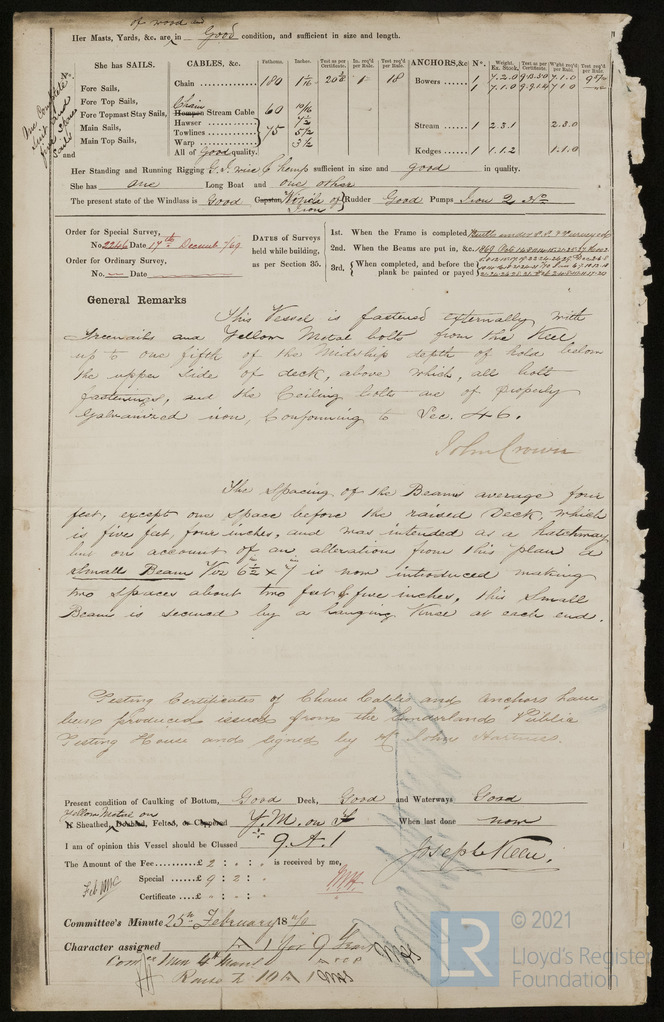 of wood and
Her Masts, Yards, &c. are in Good condition, and sufficient in size and length.
She has SAILS.
Fore Sails,
Fore Top Sails,
Fore Topmast Stay Sails,
Main Sails,
Main Top Sails,
and
CABLES, &c. Fathoms. Inches. Test as per Certificate. In. req'd per Rule. Test req'd per Rule.
Chain 180 1 1/16 1 18
Chain Hempen Stream Cable 60
Hawser
Towlines 75 5 1/2
Warp 3 1/2
All of Good quality.
ANCHORS, &c. Nº. Weight. Ex. Stock. Test as per Certificate. Wght req'd per Rule. Test req'd per Rule.
Bowers 1 7.2.0 7.1.0
1 7.1.0 7.1.0
Stream 1 2.3.1 2.3.0
Kedges 1 1.1.2 1.1.0
Her Standing and Running Rigging G.I. wire & hemp sufficient in size and good in quality.
She has one Long Boat and one other
The present state of the Windlass is Good Capstan, Winch of Iron Rudder Good Pumps Iron 2 Nº
Order for Special Survey,
No. 2246 Date 17th December /69
Order for Ordinary Survey,
No. — Date
DATES of Surveys held while building, as per Section 35.
1st. When the Frame is completed
2nd. When the Beams are put in, &c.
3rd. When completed, and before the plank be painted or payed
General Remarks
This Vessel is fastened externally with
Treenails and Yellow Metal bolts from the Keel,
up to one fifth of the Midship depth of hold below
the upper side of deck, above which, all bolt
fastenings, and the Ceiling bolts are of properly
Galvanized iron, Conforming to Sec. 46.
John Crown
The Spacing of the Beams average four
feet, except one space before the raised Deck, which
is five feet, four inches, and was intended as a hatchway,
but on account of an alteration from this plan a
Small Beam Viz 6 1/2 x 7 in is now introduced making
two spaces about two feet & five inches, this Small
Beam is secured by a hanging Knee at each end.
Testing Certificates of Chain Cables and Anchors have
been produced issued from the Sunderland Public
Testing House and signed by Mr John Hartness.
Present condition of Caulking of Bottom, Good Deck, Good and Waterways Good
Yellow Metal on
If Sheathed, Doubled, Felted, or Coppered Y.M. on F When last done now
I am of opinion this Vessel should be Classed 9.A.1
The Amount of the Fee £ 2 : : is received by me,
Special £ 9 : 2 :
Certificate £
Joseph Keen.
Committee's Minute 25th February 1870
Character assigned A 1 for 9 Years
© 2021
LR
Lloyd's Register
Foundation